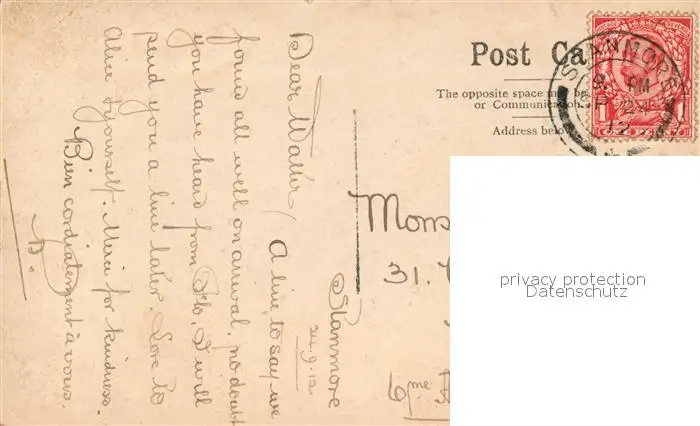 Post Ca
The opposite space may be
or Communication
Address below
STANMORE
PM
24
12
1
Stanmore
24.9.12
Dear Walter, A line to say we
found all well on arrival, no doubt
you have heard from I will
send you a line later. Love to
Alice & yourself. Merci for kindness.
Bien cordialement à vous.
Mons
31.
6me
privacy protection
Datenschutz